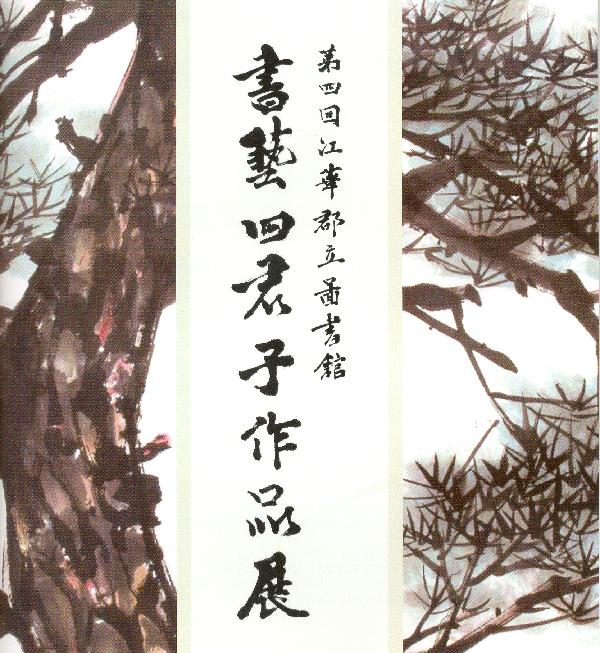 第四回江華郡立圖書館
書藝四君子作品展